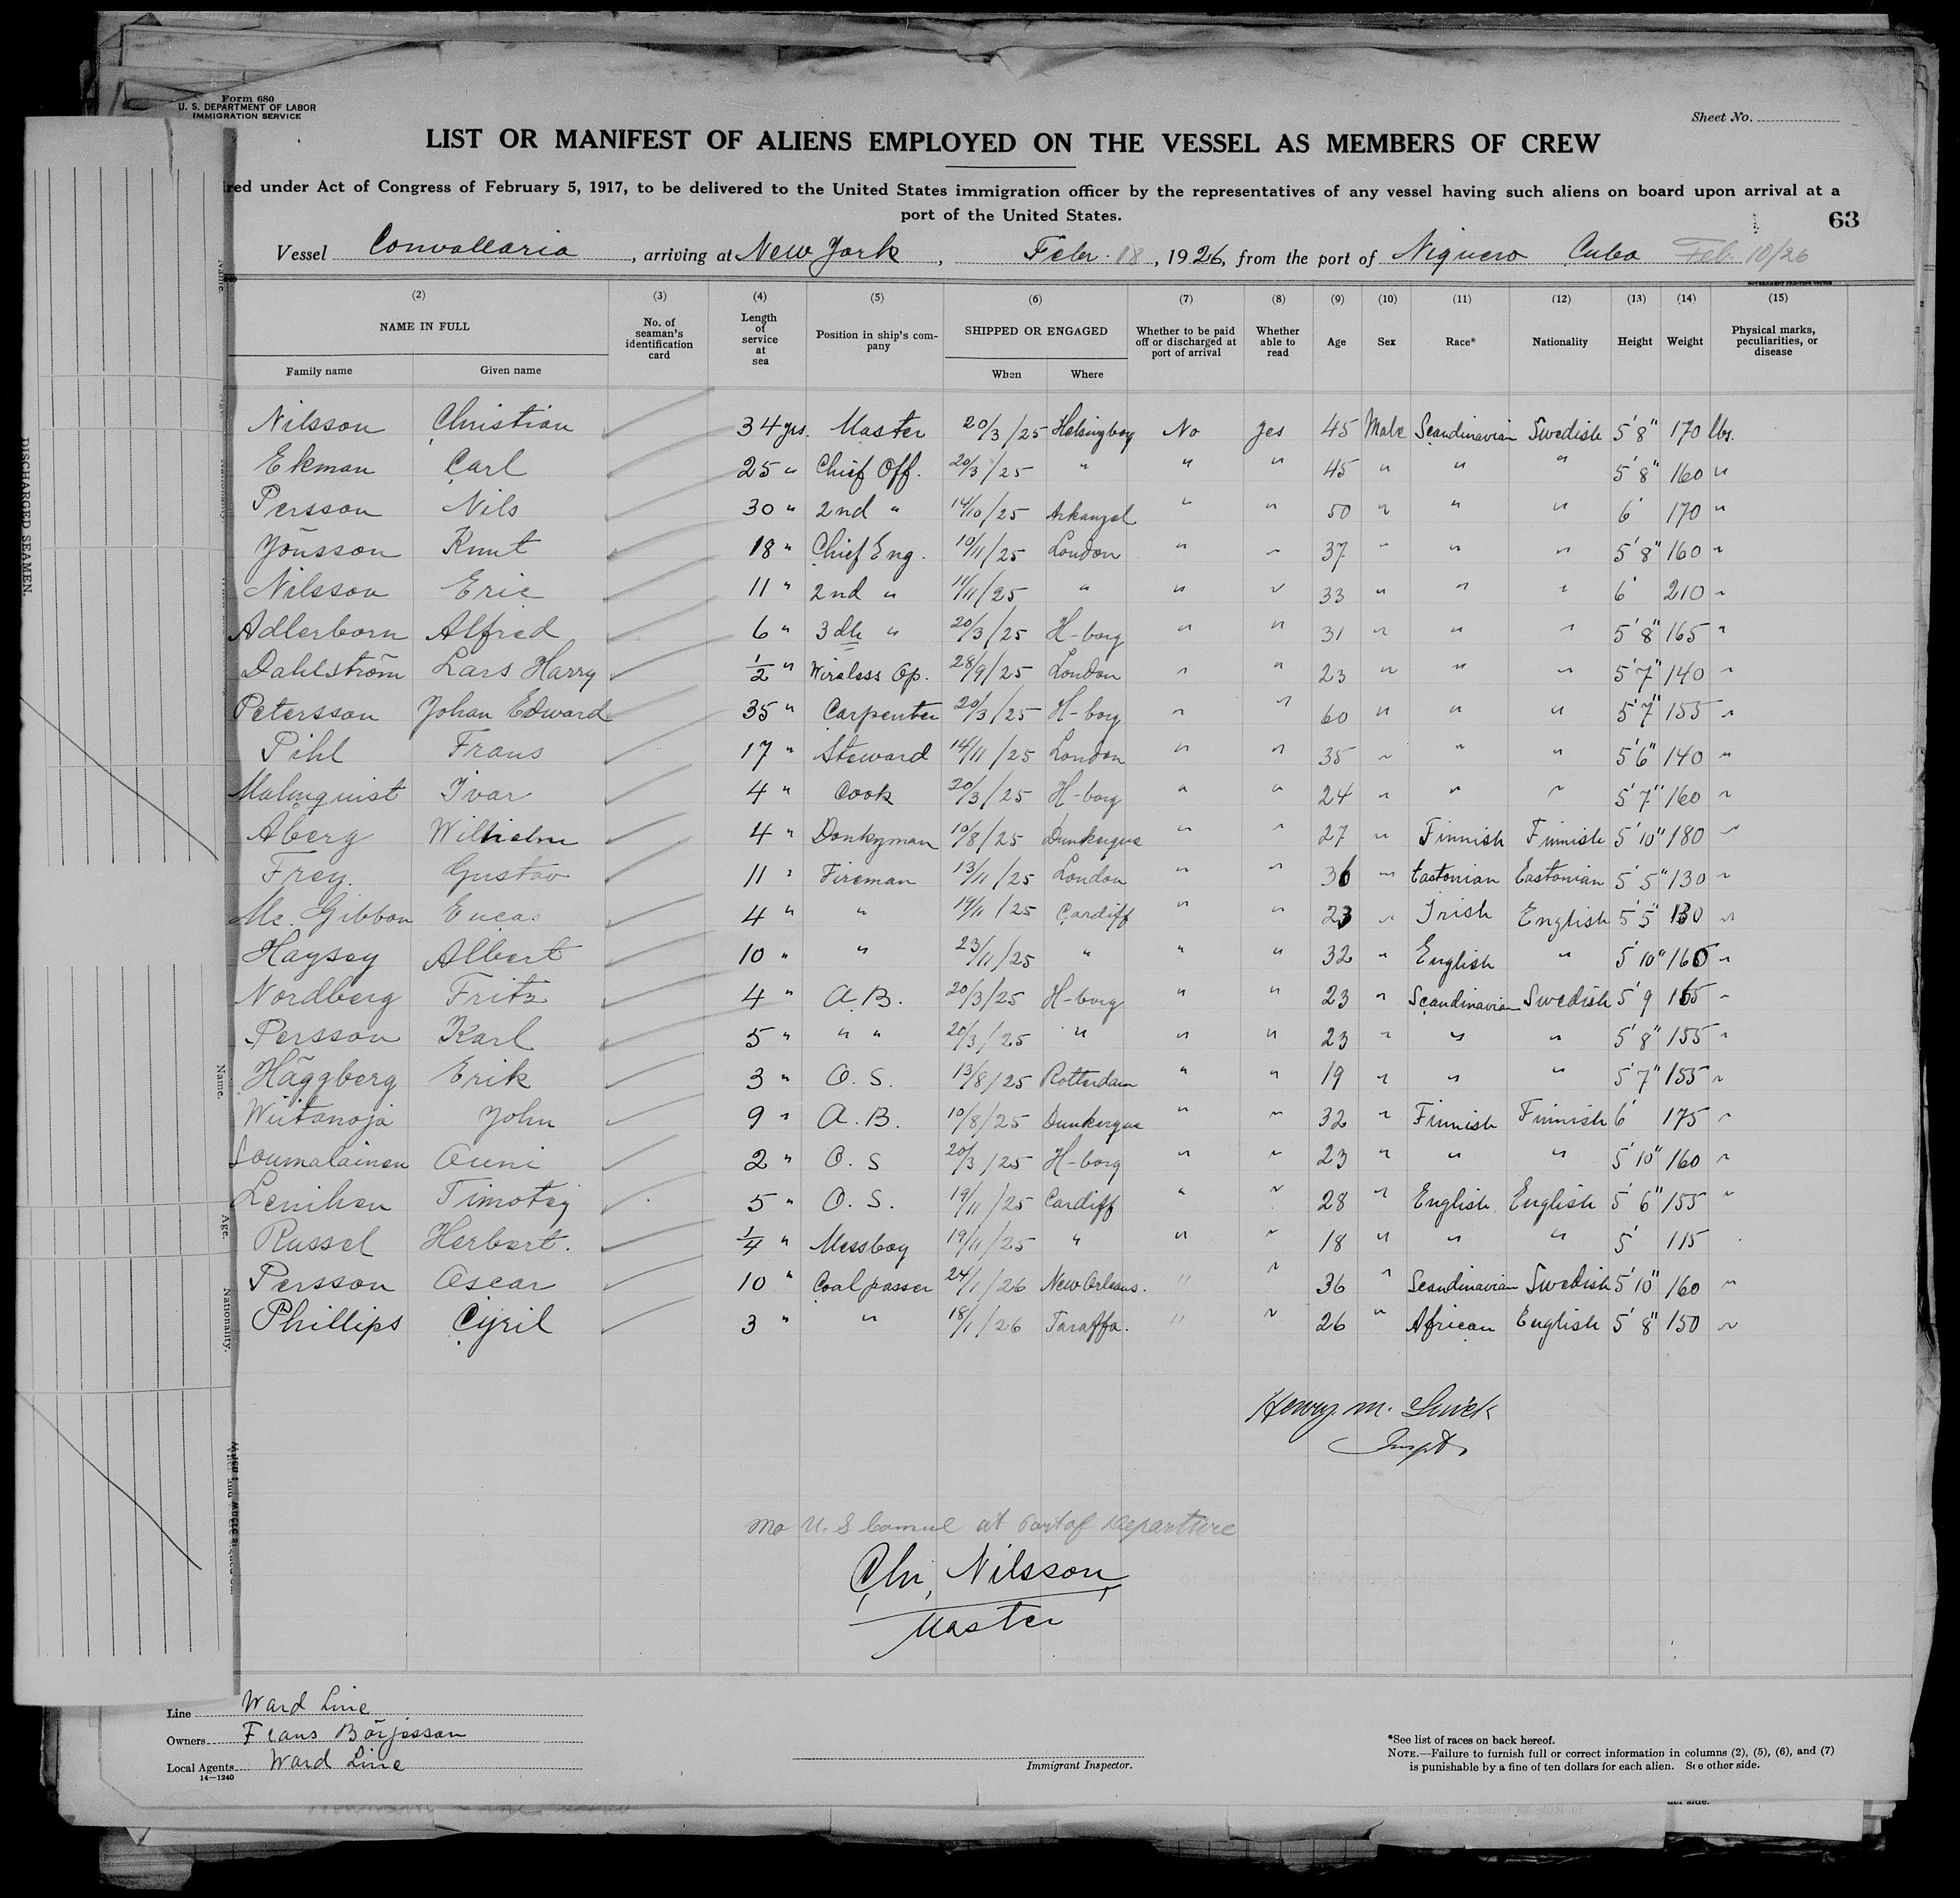 Form 680
U. S. DEPARTMENT OF LABOR
IMMIGRATION SERVICE
Sheet No.
LIST OR MANIFEST OF ALIENS EMPLOYED ON THE VESSEL AS MEMBERS OF CREW
red under Act of Congress of February 5, 1917, to be delivered to the United States immigration officer by the representatives of any vessel having such aliens on board upon arrival at a
port of the United States.
63
Vessel Convallaria, arriving at New York, Febr. 18, 1926, from the port of Niquero Cuba Feb. 10/26
GOVERNMENT PRINTING OFFICE
(2) (3) (4) (5) (6) (7) (8) (9) (10) (11) (12) (13) (14) (15)
NAME IN FULL No. of seaman's identification card Length of service at sea Position in ship's company SHIPPED OR ENGAGED Whether to be paid off or discharged at port of arrival Whether able to read Age Sex Race* Nationality Height Weight Physical marks, peculiarities, or disease
Family name Given name When Where
Nilsson Christian 34 yrs. Master 20/3/25 Helsingborg No yes 45 Male Scandinavian Swedish 5'8" 170 lbs.
Ekman Carl 25 " Chief Off. 20/3/25 " " " 45 " " " 5'8" 160 "
Persson Nils 30 " 2nd " 14/10/25 Arkangel " " 50 " " " 6' 170 "
Jönsson Knut 18 " Chief Eng. 10/11/25 London " " 37 " " " 5'8" 160 "
Nilsson Eric 11 " 2nd " 11/11/25 " " " 33 " " " 6' 210 "
Adlerborn Alfred 6 " 3dh " 20/3/25 H-borg " " 31 " " " 5'8" 165 "
Dahlström Lars Harry 1/2 " Wireless Op. 28/9/25 London " " 23 " " " 5'7" 140 "
Petersson Johan Edward 35 " Carpenter 20/3/25 H-borg " " 60 " " " 5'7" 155 "
Pihl Frans 17 " Steward 14/11/25 London " " 35 " " " 5'6" 140 "
Malmquist Ivar 4 " Cook 20/3/25 H-borg " " 24 " " " 5'7" 160 "
Åberg Wilhelm 4 " Donkyman 10/8/25 Dunkerque " " 27 " Finnish Finnish 5'10" 180 "
Frey. Gustav 11 " Fireman 13/11/25 London " " 36 " Eastonian Eastonian 5'5" 130 "
Mc. Gibbon 4 " " 19/11/25 Cardiff " " 23 " Irish English 5'5" 130 "
Haysey Albert 10 " " 23/11/25 " " " 32 " English " 5'10" 160 "
Nordberg Fritz 4 " A.B. 20/3/25 H-borg " " 23 " Scandinavian Swedish 5'9 165 "
Persson Karl 5 " " " 20/3/25 " " " 23 " " " 5'8" 155 "
Häggberg Erik 3 " O. S. 13/8/25 Rotterdam " " 19 " " " 5'7" 155 "
Wiitanoja John 9 " A.B. 10/8/25 Dunkerque " " 32 " Finnish Finnish 6' 175 "
Soumalainen Ouni 2 " O. S 20/3/25 H-borg " " 23 " " " 5'10" 160 "
Lenihen Timotey 5 " O. S. 19/11/25 Cardiff " " 28 " English English 5'6" 155 "
Russel Herbert. 1/4 " Messboy 19/11/25 " " " 18 " " " 5' 115
Persson Oscar 10 " Coalpasser 24/1/26 New Orleans. " " 36 " Scandinavian Swedish 5'10" 160 "
Phillips Cyril 3 " " 18/1/26 Tarafa. " " 26 " African English 5'8" 150 "
Henry M.
Inspt.
No U. S Consul at Port of Departure
Chr. Nilsson
Master
Line Ward Line
Owners Frans Börjesson
Local Agents Ward Line
14—1240
Immigrant Inspector.
*See list of races on back hereof.
NOTE.—Failure to furnish full or correct information in columns (2), (5), (6), and (7)
is punishable by a fine of ten dollars for each alien. See other side.
DISCHARGED SEAMEN.
Name.
Age.
Nationality.